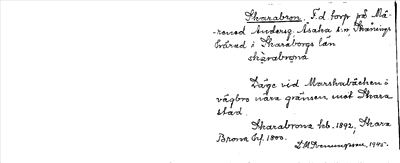 Skarabron. F.d. torp på Mä-
rened Andersg. Åsaka sn Skånings
härad i Skaraborgs län
skarabrona
Läge vid Marshabäcken o
vägbro nära gränsen mot Skara
stad.
Skarabrona hb. 1892, Skara
Brona Lf. 1800.
1945.